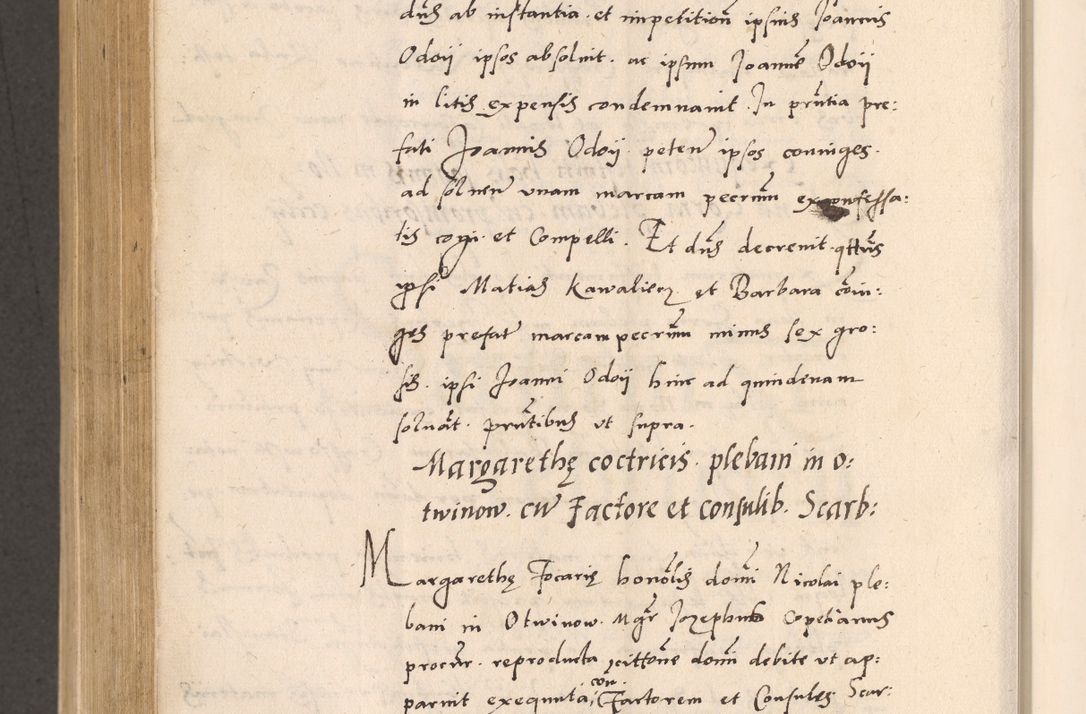 dns ab instantia et impetition ipsius Joannis
Odoij ipsos absoluit. ac ipsum Joanne Odoij
in litis expensis condemnauit. In pntia pre:
fati Joannis Odoij peten ipsos coniuges.
ad soluen unam marcam pecnm ex confessa:
tis cogi et Compelli. Et dns decreuit qttus
ipsi Matias Kawaliecz et Barbara coiu:
ges prefat marcam pecnm minus sex gro:
sis. ipsi Joanni Odoij hinc ad quindenam
soluat. pntibus ut supra.
Margarethę coctricis. plebani in o:
twinow. cu Factore et consulib. Scarb:
Margarethę Focarię honolis domi Nicolai ple:
bani in Otwinow. Mgr Jozephus Copetianus
procur. reproducta citione domi debite ut ap:
paruit exequuta, con. Factorem et Consules Scar: